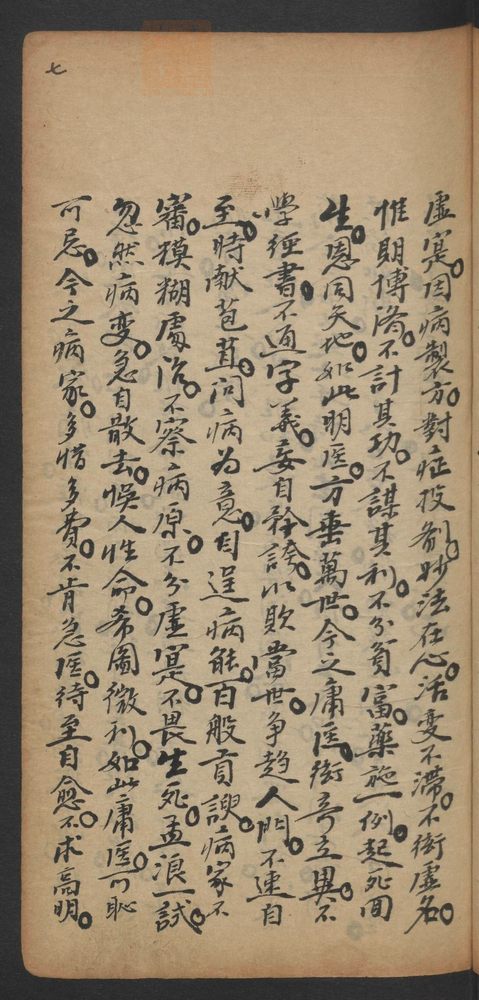 虛寔。因病製方。對症投劑。妙法在心。活变不滯。不衒虛名。
惟期博濟。不計其功。不謀其利。不分貧富。藥施一例。起死回
生。恩同天地。如此明医。方垂萬世。今之庸医。衒奇立異。不
學經書。不通字義。妄自矜誇。以欺當世。争趋人門。不速自
至。時献苞苴。问病为意。自逞病能。百般貢諛。病家不
審。模糊處治。不察病原。不分虛寔。不畏生死。孟浪一試。
忽然病变。急自散去。悞人性命。希圖微利。如此庸医。可恥
可忌。今之病家。多惜多費。不肯急医。待至自愈。不求高明。
七